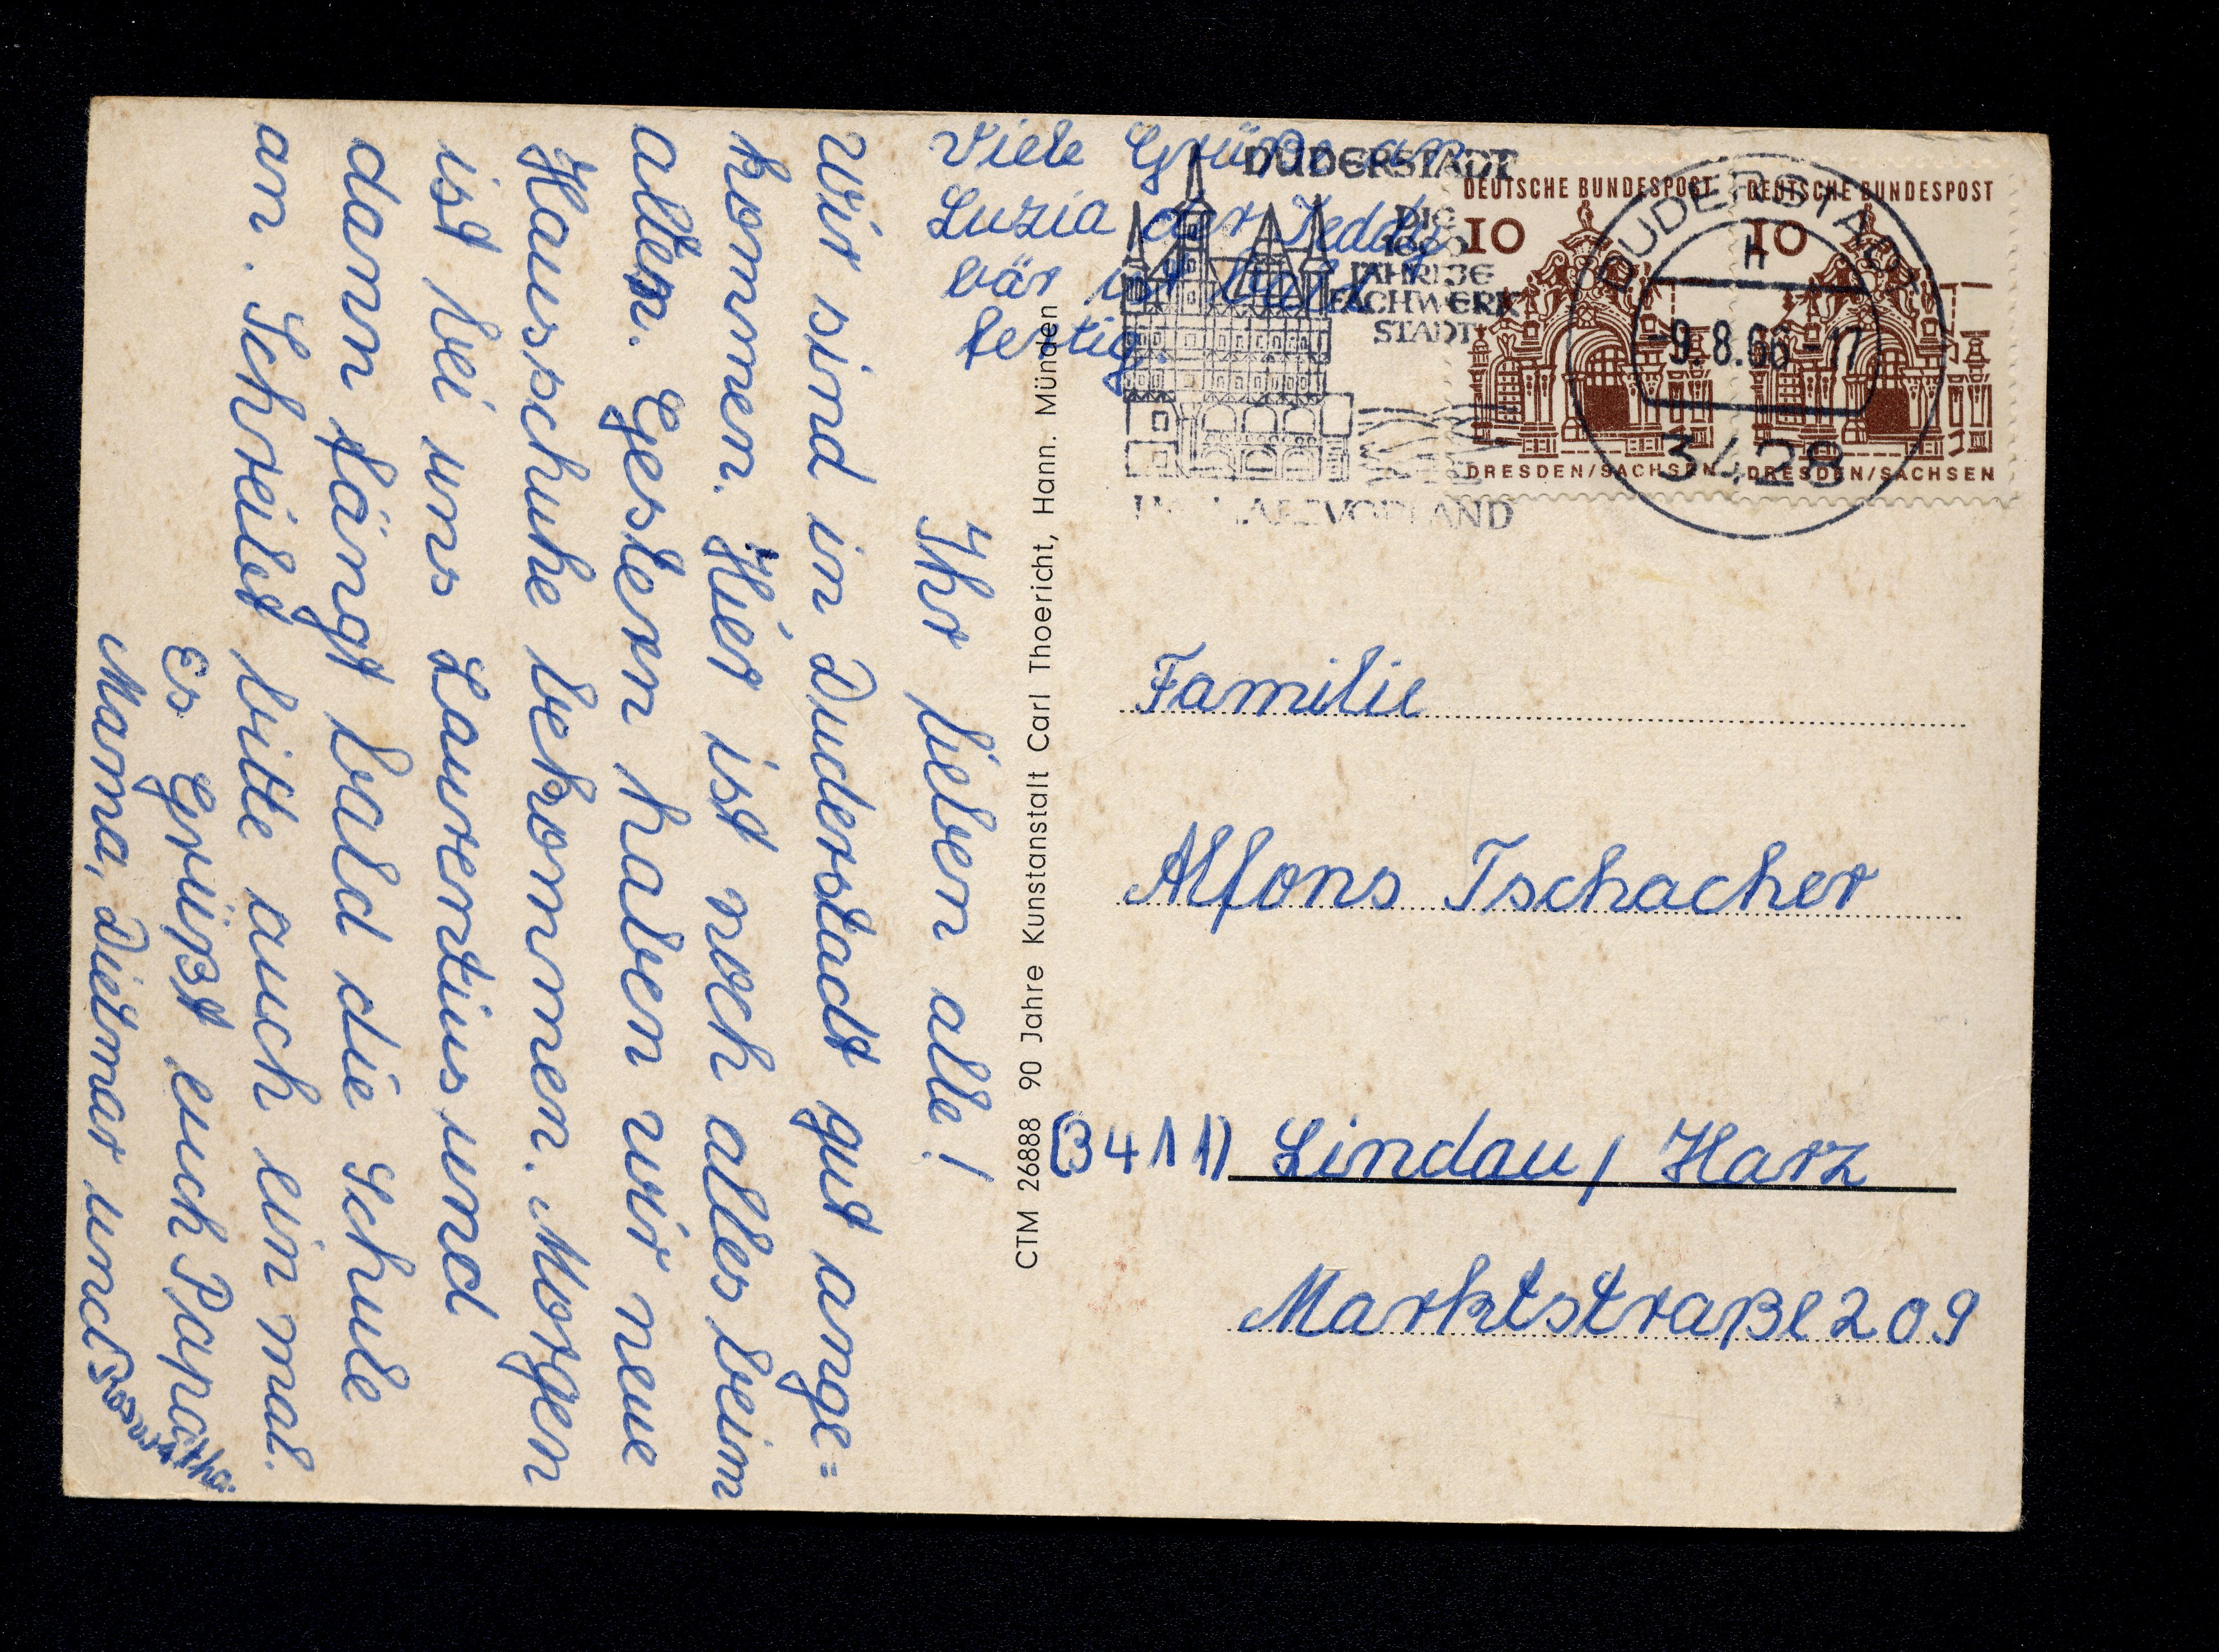 Ihr lieben alle!
Wir sind in Duderstadt gut ange=
kommen. Hier ist noch alles beim
alten. Gestern haben wir neue
Hausschuhe bekommen. Morgen
ist bei uns Laurentius und
dann fängt bald die Schule
an. Schreibt bitte auch ein mal.
Es Grüßt euch Papa
Mama, Dietmar und
Viele Grüße an
Luzia der Teddy
bär ist bald
fertig.
CTM 26888 90 Jahre Kunstanstalt Carl Thoericht, Hann. Münden
DUDERSTADT
DIE
1000
JÄHRIGE
FACHWERK
STADT
DEUTSCHE BUNDESPOST
10
DRESDEN/SACHSEN
DEUTSCHE BUNDESPOST
10
DRESDEN/SACHSEN
DUDERSTADT
h
-9.8.66-17
3428
Familie
Alfons Tschacher
(3411) Lindau / Harz
Marktstraße 209